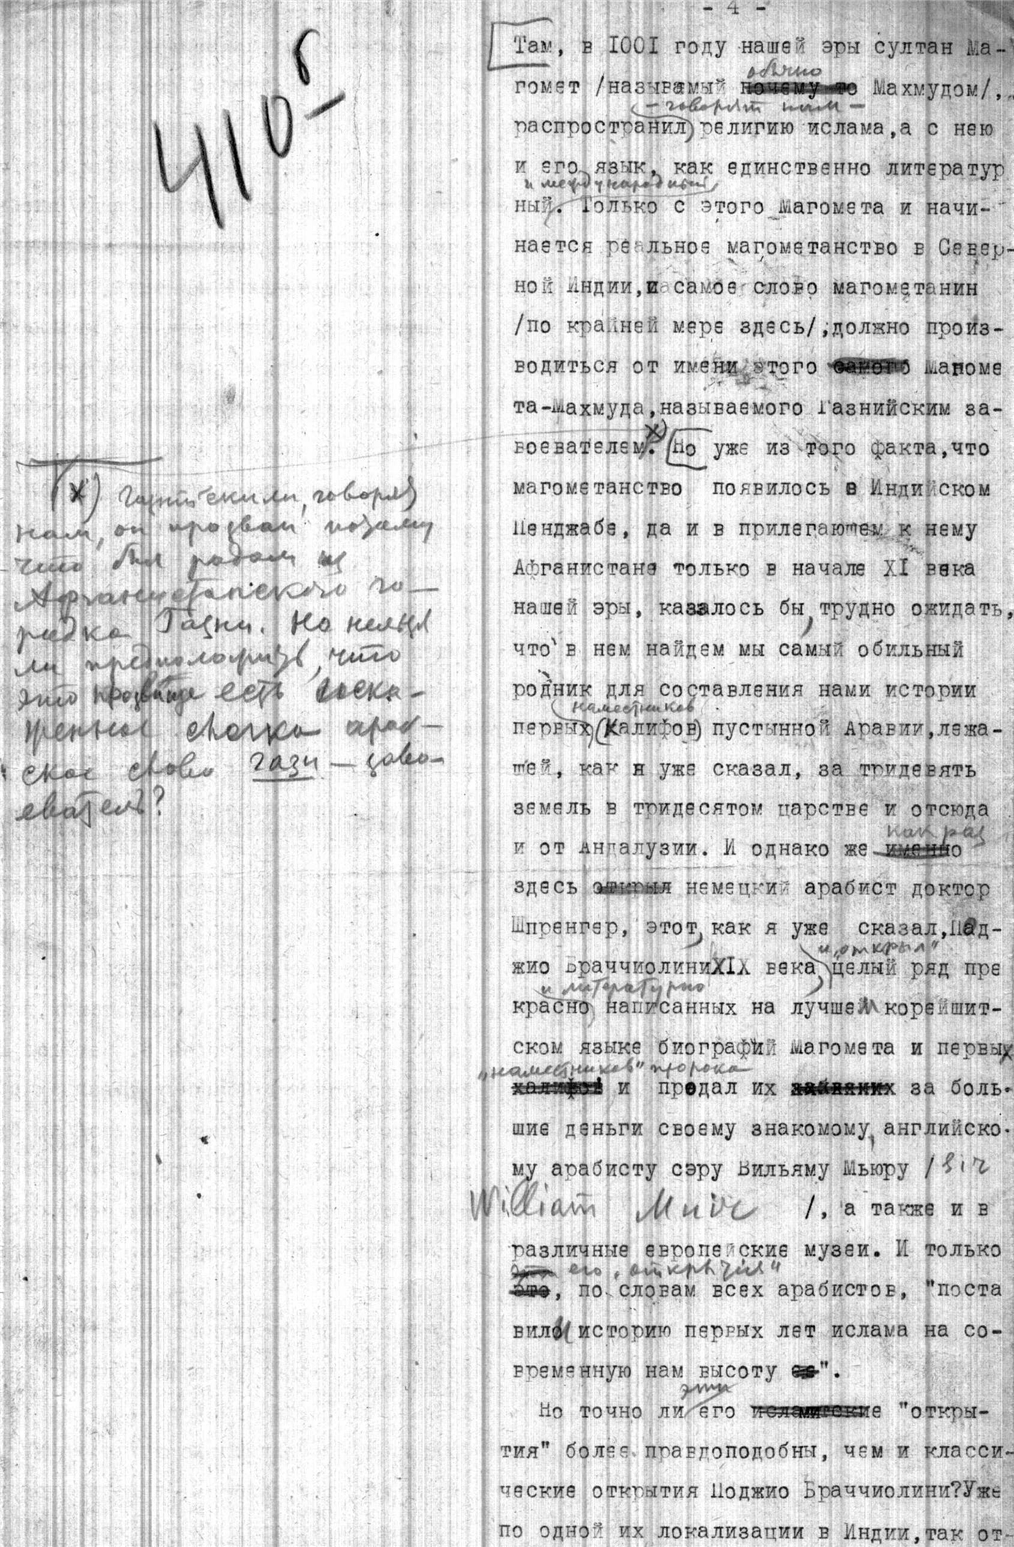 - 4 -
410б
Там, в I00I году нашей эры султан Ма-
обычно
гомет /называемый почему то Махмудом/,
— говорят нам —
распространил религию ислама,а с нею
и его язык, как единственно литератур
и международный
ный. Только с этого Магомета и начи-
нается реальное магометанство в Север-
ной Индии,и самое слово магометанин
/по крайней мере здесь/,должно произ-
водиться от имени этого самого Магоме
та-Махмуда,называемого Газнийским за-
воевателем.х) Но уже из того факта,что
магометанство появилось в Индийском
Пенджабе, да и в прилегающем к нему
Афганистане только в начале XI века
нашей эры, казалось бы, трудно ожидать,
что в нем найдем мы самый обильный
родник для составления нами истории
наместников
первых (Калифов) пустынной Аравии,лежа-
щей, как я уже сказал, за тридевять
земель в тридесятом царстве и отсюда
как раз
и от Андалузии. И однако же именно
здесь открыл немецкий арабист доктор
Шпренгер, этот, как я уже сказал,Под-
и „открыл"
жио Браччиолини XIX века, целый ряд пре
и литературно
красно написанных на лучшем корейшит-
ском языке биографий Магомета и первых
„наместников" пророка
халифов и предал их за боль-
шие деньги своему знакомому, английско-
му арабисту сэру Вильяму Мьюру /Sir
William Muir /, а также и в
различные европейские музеи. И только
его „открытия"
это, по словам всех арабистов, "поста
вили историю первых лет ислама на со-
временную нам высоту".
эти
Но точно ли его исламитские "откры-
тия" более правдоподобны, чем и класси-
ческие открытия Поджио Браччиолини?Уже
по одной их локализации в Индии,так от-
(х) Газнийским, говорят
нам, он прозван потому
что был родом из
Афганистанского го-
родка Газни. Но нельзя
ли предположить, что
это прозвище есть иска-
женное слово араб-
ское слово гази — заво-
еватель?